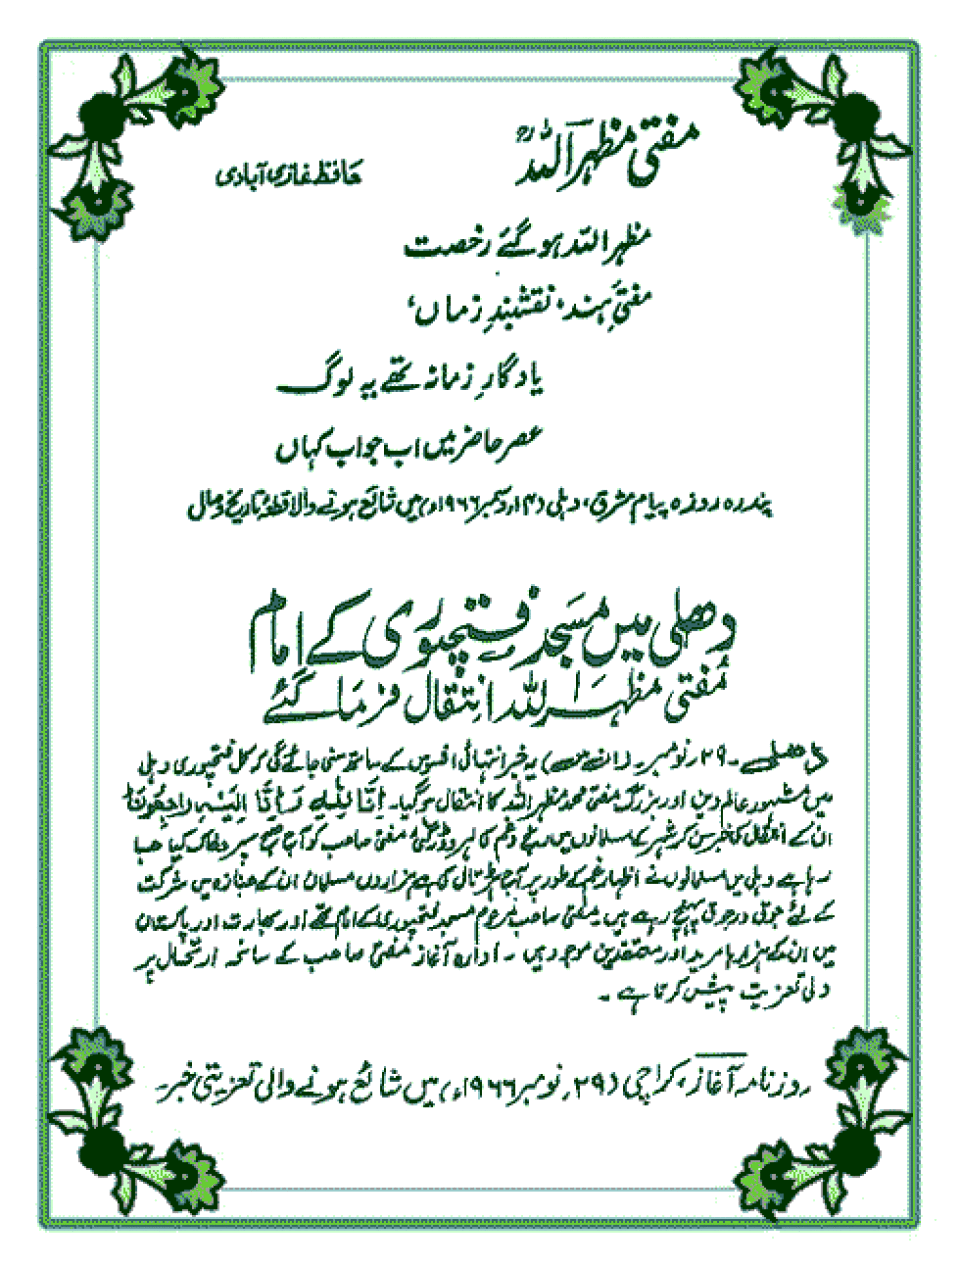 مفتی مظہر اللہؒ
حافظ غازی آبادی
مظہر اللہ ہو گئے رخصت
مفتیِ ہند، نقشبندِ زماں،
یادگارِ زمانہ تھے یہ لوگ
عصر حاضر میں اب جواب کہاں
پندرہ روزہ پیام مشرق، دہلی (۱۴ دسمبر ۱۹۶۶ء) میں شائع ہونے والا قطعۂ تاریخ وصال
دھلی میں مسجد فتحپوری کے امام
مُفتی مظہر اللہ انتقال فرما گئے
دھلی ۔ ۲۹ نومبر ۔ یہ خبر انتہائی افسوس کے ساتھ سنی جائے گی کہ کل فتحپوری دہلی
میں مشہور عالم دین اور بزرگ مفتی محمد مظہر اللہ کا انتقال ہو گیا۔ اِنَّا لِلّٰہِ وَ اِنَّا اِلَیْہِ رَاجِعُوْنَ
ان کے انتقال کی خبر سن کر شہر کے مسلمانوں میں رنج و غم کی لہر دوڑ گئی مفتی صاحب کو آج صبح سپرد خاک کیا جا
رہا ہے دہلی میں مسلمانوں نے اظہار غم کے طور پر آج ہڑتال کی ہے ہزاروں مسلمان ان کے جنازہ میں شرکت
کے لئے جوق درجوق پہنچ رہے ہیں۔ مفتی صاحب مرحوم مسجد فتحپوری کے امام تھے اور بھارت اور پاکستان
میں ان کے ہزارہا مرید اور معتقدین موجود ہیں ۔ ادارہ آغاز مفتی صاحب کے سانحہ ارتحال پر
دلی تعزیت پیش کرتا ہے ۔
روزنامہ آغاز، کراچی (۲۹ نومبر ۱۹۶۶ء) میں شائع ہونے والی تعزیتی خبر۔